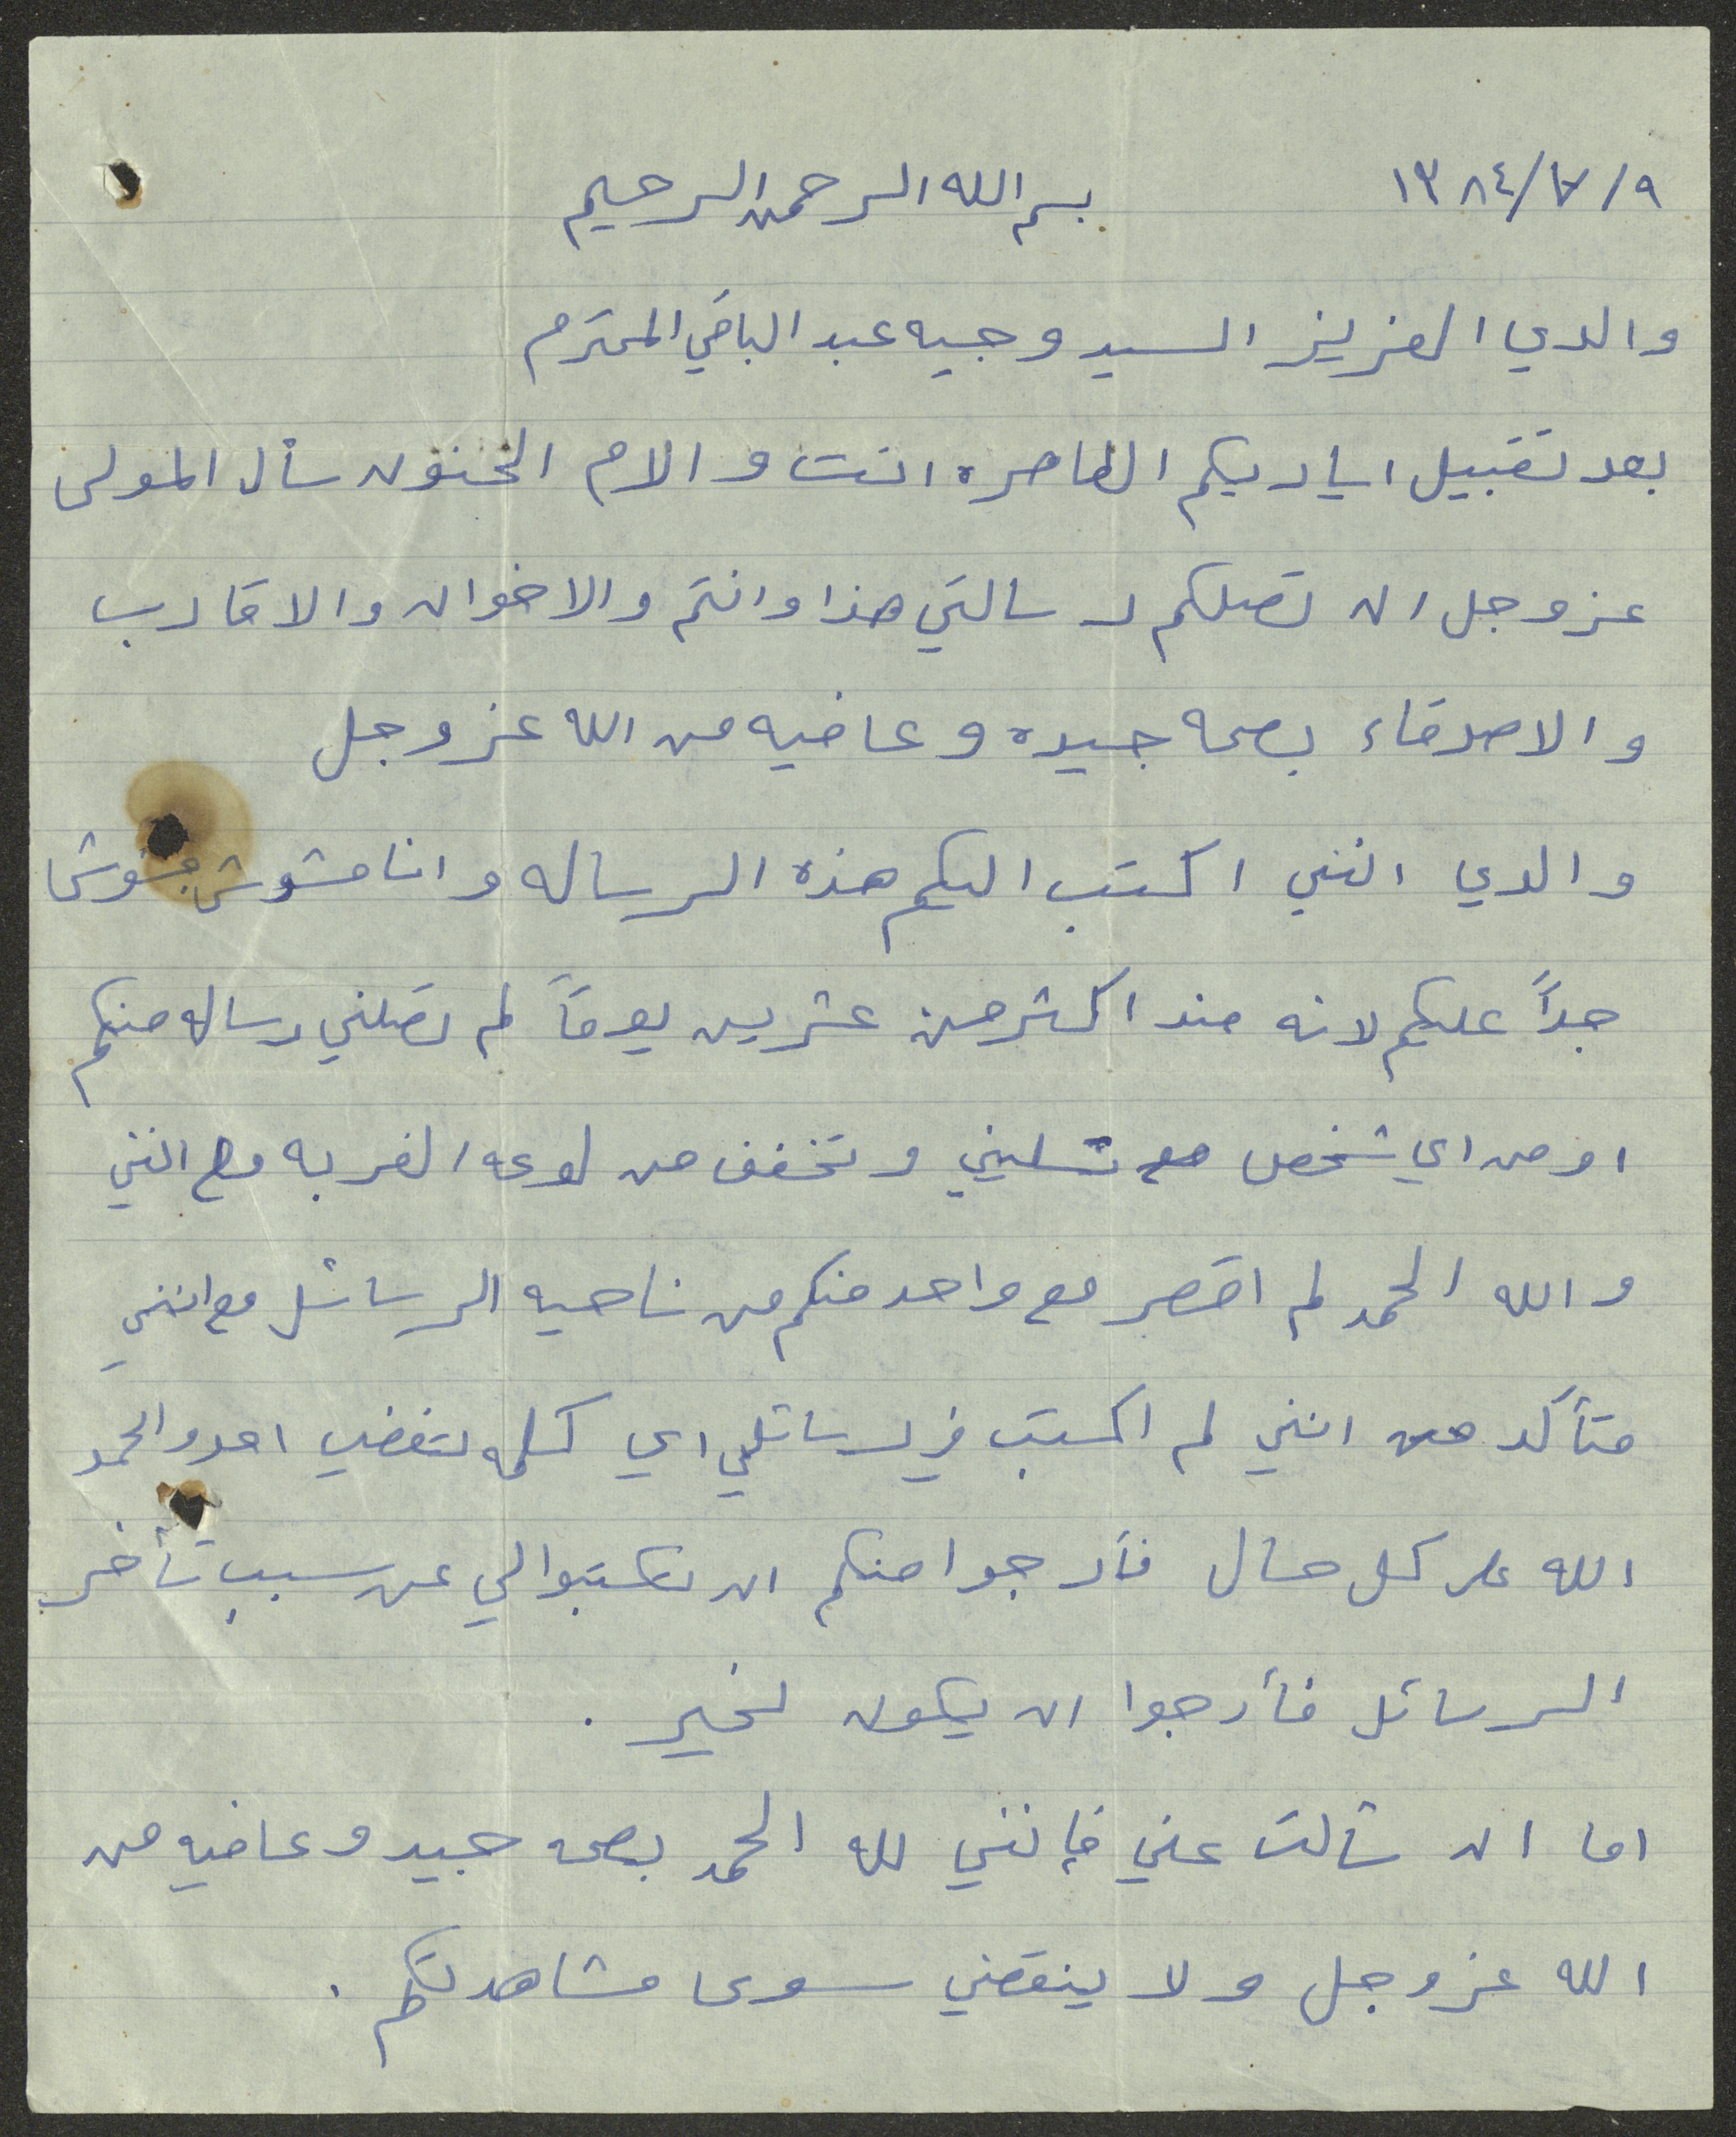 ٩/٧/١٣٨٤
بسم الله الرحمن الرحيم
والدي العزيز السيد وجيه عبد الباقي المحترم
بعد تقبيل اياديكم الطاهره انت والام الحنون سأل المولى
عز وجل ان تصلكم رسالتي هذا وانتم والاخوان والاقارب
والاصدقاء بصحه جيده وعافيه من الله عز وجل
والدي انني اكتب اليكم هذه الرساله وانا مشوش مشوش
جداً عليكم لانه منذ اكثر من عشرين يوماً لم تصلني رساله منكم
او من اي شخص تسليني وتخفف من لوعه الغربه مع انني
والله الحمد لم اقصر مع واحد منكم من ناحيه الرسائل مع انني
متأكد من انني لم اكتب في رسائلي اي كلمه تغضب احد والحمد
الله على كل حال فأرجوا منكم ان تكتبوا لي عن سبب تأخر
الرسائل فأرجوا ان يكون لخير .
اما ان سألت عني فإنني لله الحمد بصحه جيد وعافيه من
الله عز وجل ولا ينقصني سوى مشاهدتكم .